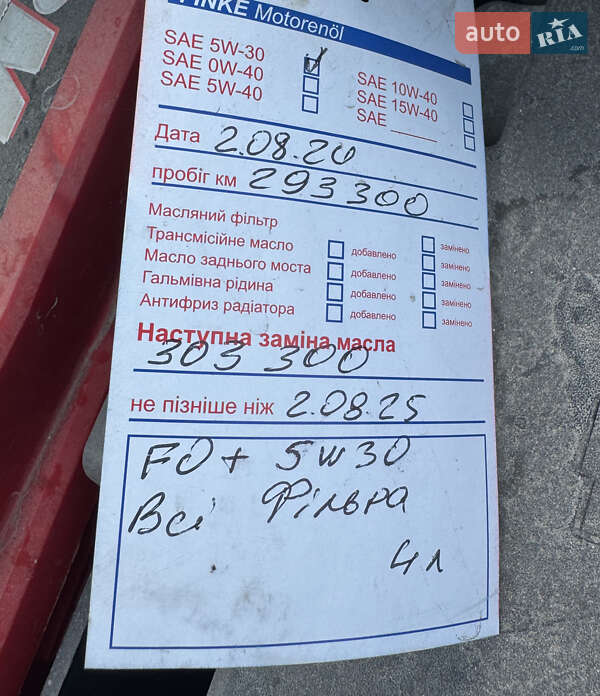 FINKE Motorenöl
auto RIA.com
SAE 5W-30
SAE 0W-40
SAE 5W-40
SAE 10W-40
SAE 15W-40
SAE ______
Дата 2.08.24
пробіг км 293300
Масляний фільтр
Трансмісійне масло добавлено замінено
Масло заднього моста добавлено замінено
Гальмівна рідина добавлено замінено
Антифриз радіатора добавлено замінено
замінено
Наступна заміна масла
303 300
не пізніше ніж 2.08.25
FO+ 5W30
Всі Фільра
4л